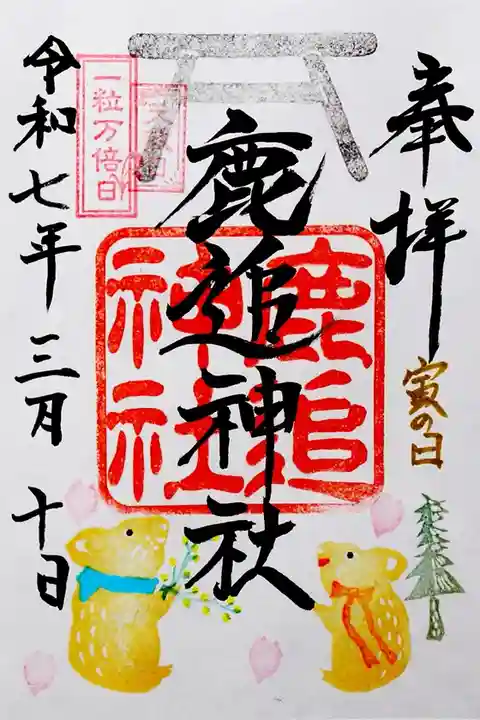 奉拝
寅の日
鹿追神社
鹿追
神社
一粒万倍日
令和七年三月十日